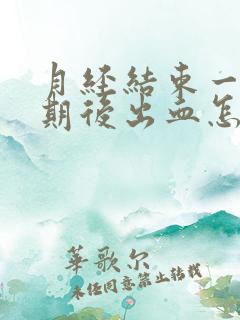 月經結束一
期後出血怎
華歌尔
未经同意禁止转载